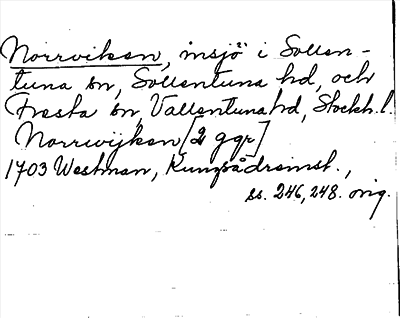 Norrviken, insjö i Sollen-
tuna sn, Sollentuna hd, och
Fresta sn, Vallentuna hd, Stockh. l.
Norrwijken [2 ggr]
1703 Westman, Kungsådremst.,
ss. 246, 248. orig.